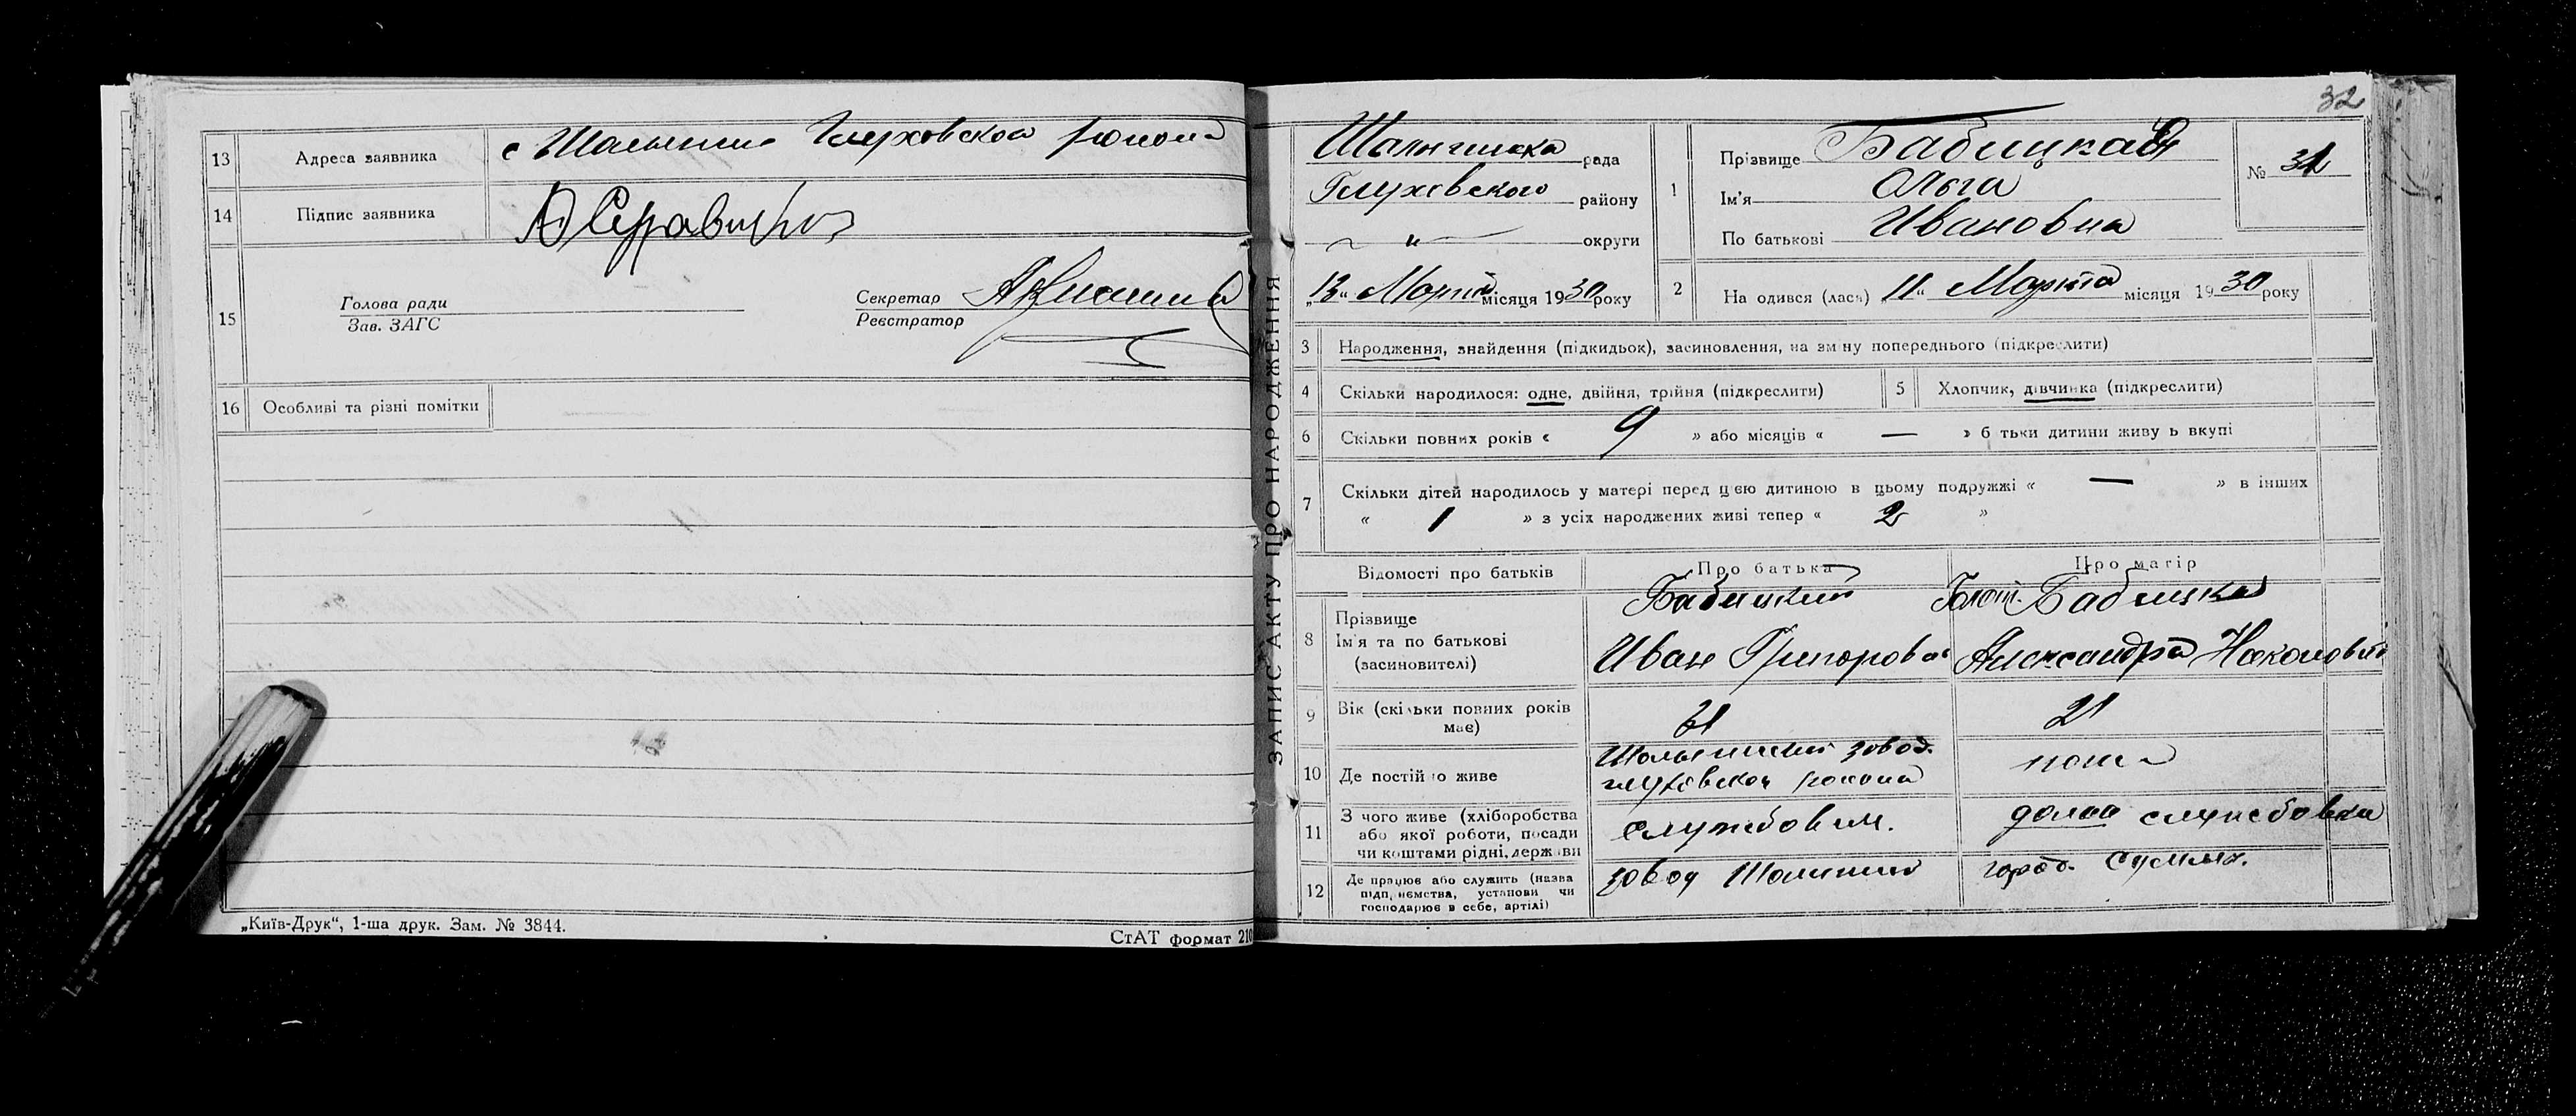 13 Адреса заявника с Шалыгине Глуховского района
14 Підпис заявника
15 Голова ради
Зав. ЗАГС
Секретар
Реєстратор
16 Особливі та різні помітки
„Київ-Друк“, 1-ша друк. Зам. № 3844.
СтАТ формат 210
ЗАПИС АКТУ ПРО НАРОДЖЕННЯ
32
рада
Глуховского району
„ округи
„13“ Марта місяця 1930 року
1 Прізвище Бабицкая
Ім'я Ольга
По батькові Ивановна
№ 31
2 На одився (лася) 11“ Марта місяця 1930 року
3 Народження, знайдення (підкидьок), засиновлення, на зміну попереднього (підкреслити)
4 Скільки народилося: одне, двійня, трійня (підкреслити)
5 Хлопчик, дівчинка (підкреслити)
6 Скільки повних років « 9 » або місяців « — » б тьки дитини живу ь вкупі
7 Скільки дітей народилось у матері перед цією дитиною в цьому подружжі « — » в інших
« 1 » з усіх народжених живі тепер « 2 »
Відомості про батьків Про батька Про матір
8 Прізвище Бабицкий Бабицкая
Ім'я та по батькові Иван Григоров Александра
(засновителі)
9 Вік (скільки повних років має) 21
10 Де постійно живе завод.
района
11 З чого живе (хліборобства
або якої роботи, посади
чи коштами рідні, держави службовец. службовки
12 Де працює або служить (назва
підприємства, установи чи
господарює в себе, артілі) завод